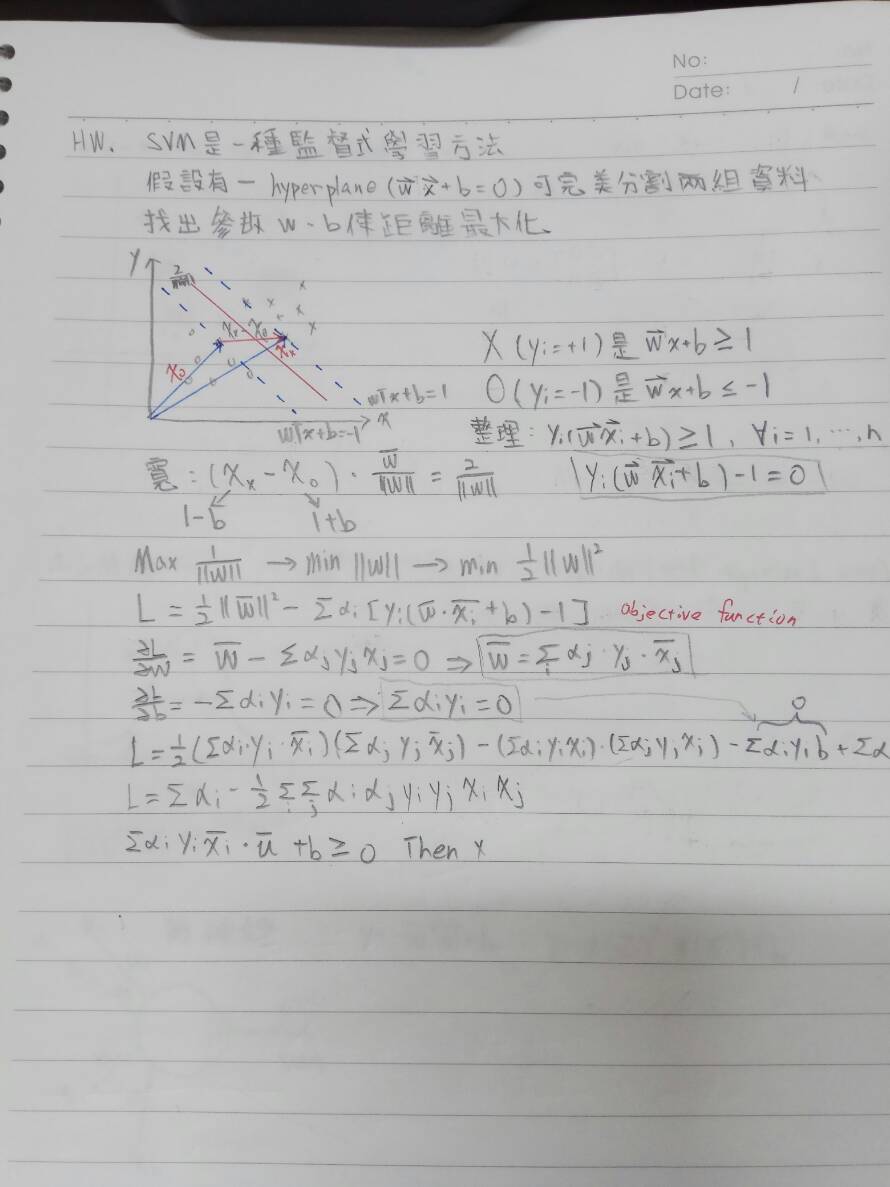 No:
Date: /
HW. SVM是一種監督式學習方法
假設有一 hyperplane (w⃗ x⃗ + b = 0) 可完美分割兩組資料
找出參故 w、b使距離最大化、
Y
2/||w||
Xx - X0
X0
Xx
wᵀx+b=1
X
wᵀx+b=-1
X (yi=+1) 是 w⃗x+b ≥ 1
O (yi=-1) 是 w⃗x+b ≤ -1
整理: yi(w⃗x⃗i+b) ≥ 1, ∀i=1, ..., n
寬: (Xx - X0) · w̅/||w|| = 2/||w||
yi(w⃗ x⃗i+b)-1=0
1-b 1+b
Max 1/||w|| → min ||w|| → min 1/2 ||w||²
L = 1/2 ||w̅||² - Σαi [yi(w̅·x̅i+b)-1] objective function
∂L/∂w = w̅ - Σαj yj xj = 0 ⇒ w̅ = Σi αj · yj · x̅j
∂L/∂b = -Σαi yi = 0 ⇒ Σαi yi = 0
0
L = 1/2 (Σαi·yi·x̅i)(Σαj yj x̅j) - (Σαi yi xi)·(Σαj yj xj) - Σαi yi b + Σα
L = Σαi - 1/2 Σi Σj αi αj yi yj xi xj
Σαi yi x̅i · u̅ + b ≥ 0 Then x